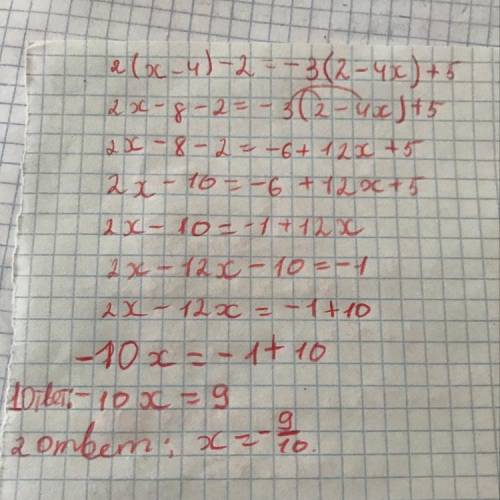 2(x-4)-2=-3(2-4x)+5
2x-8-2=-3(2-4x)+5
2x-8-2=-6+12x+5
2x-10=-6+12x+5
2x-10=-1+12x
2x-12x-10=-1
2x-12x=-1+10
-10x=-1+10
1 Ответ: -10x=9
2 ответ: x=-9/10.